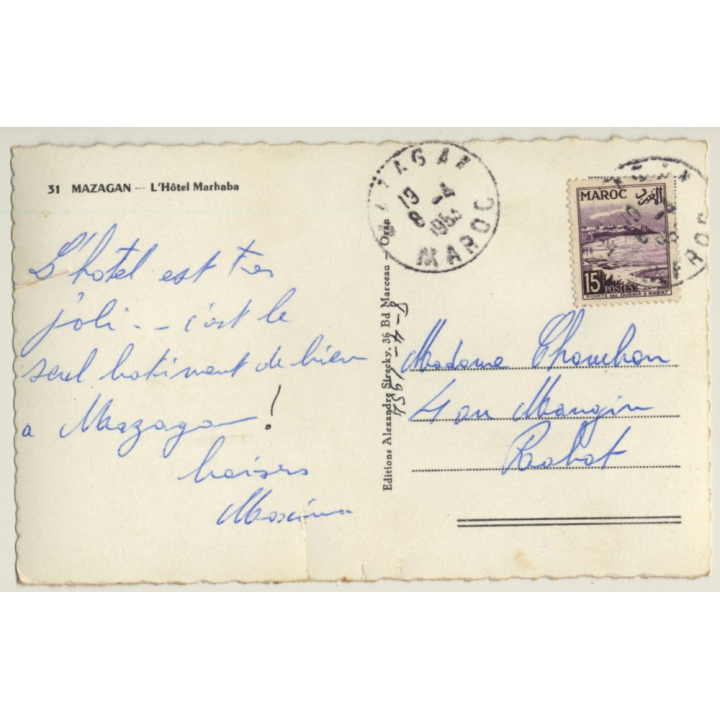 31 MAZAGAN -- L'Hôtel Marhaba
L'hotel est tres
joli -- c'est le
seul batiment de bien
a Mazagan!
baisers
Maxime
Editions Alexandre Sirecky, 36 Bd Marceau - Oran
8-4-1954
MAZAGAN
19
8 -4
1953
MAROC
MAROC
15F
POSTES
POINTE DES OUDAIA A RABAT
Madame
4 Mangin
Rabat